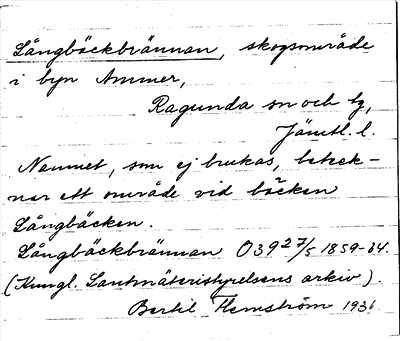 Långbäckbrännan, skogsområde
i byn Ammer,
Ragunda sn och tg,
Jämtl. l.
Namnet, som ej brukas, beteck-
nar ett område vid bäcken
Långbäcken.
Långbäckbrännan O39 27/5 1859-64.
(Kungl. Lantmäteristyrelsens arkiv).
Bertil Flemström 1936